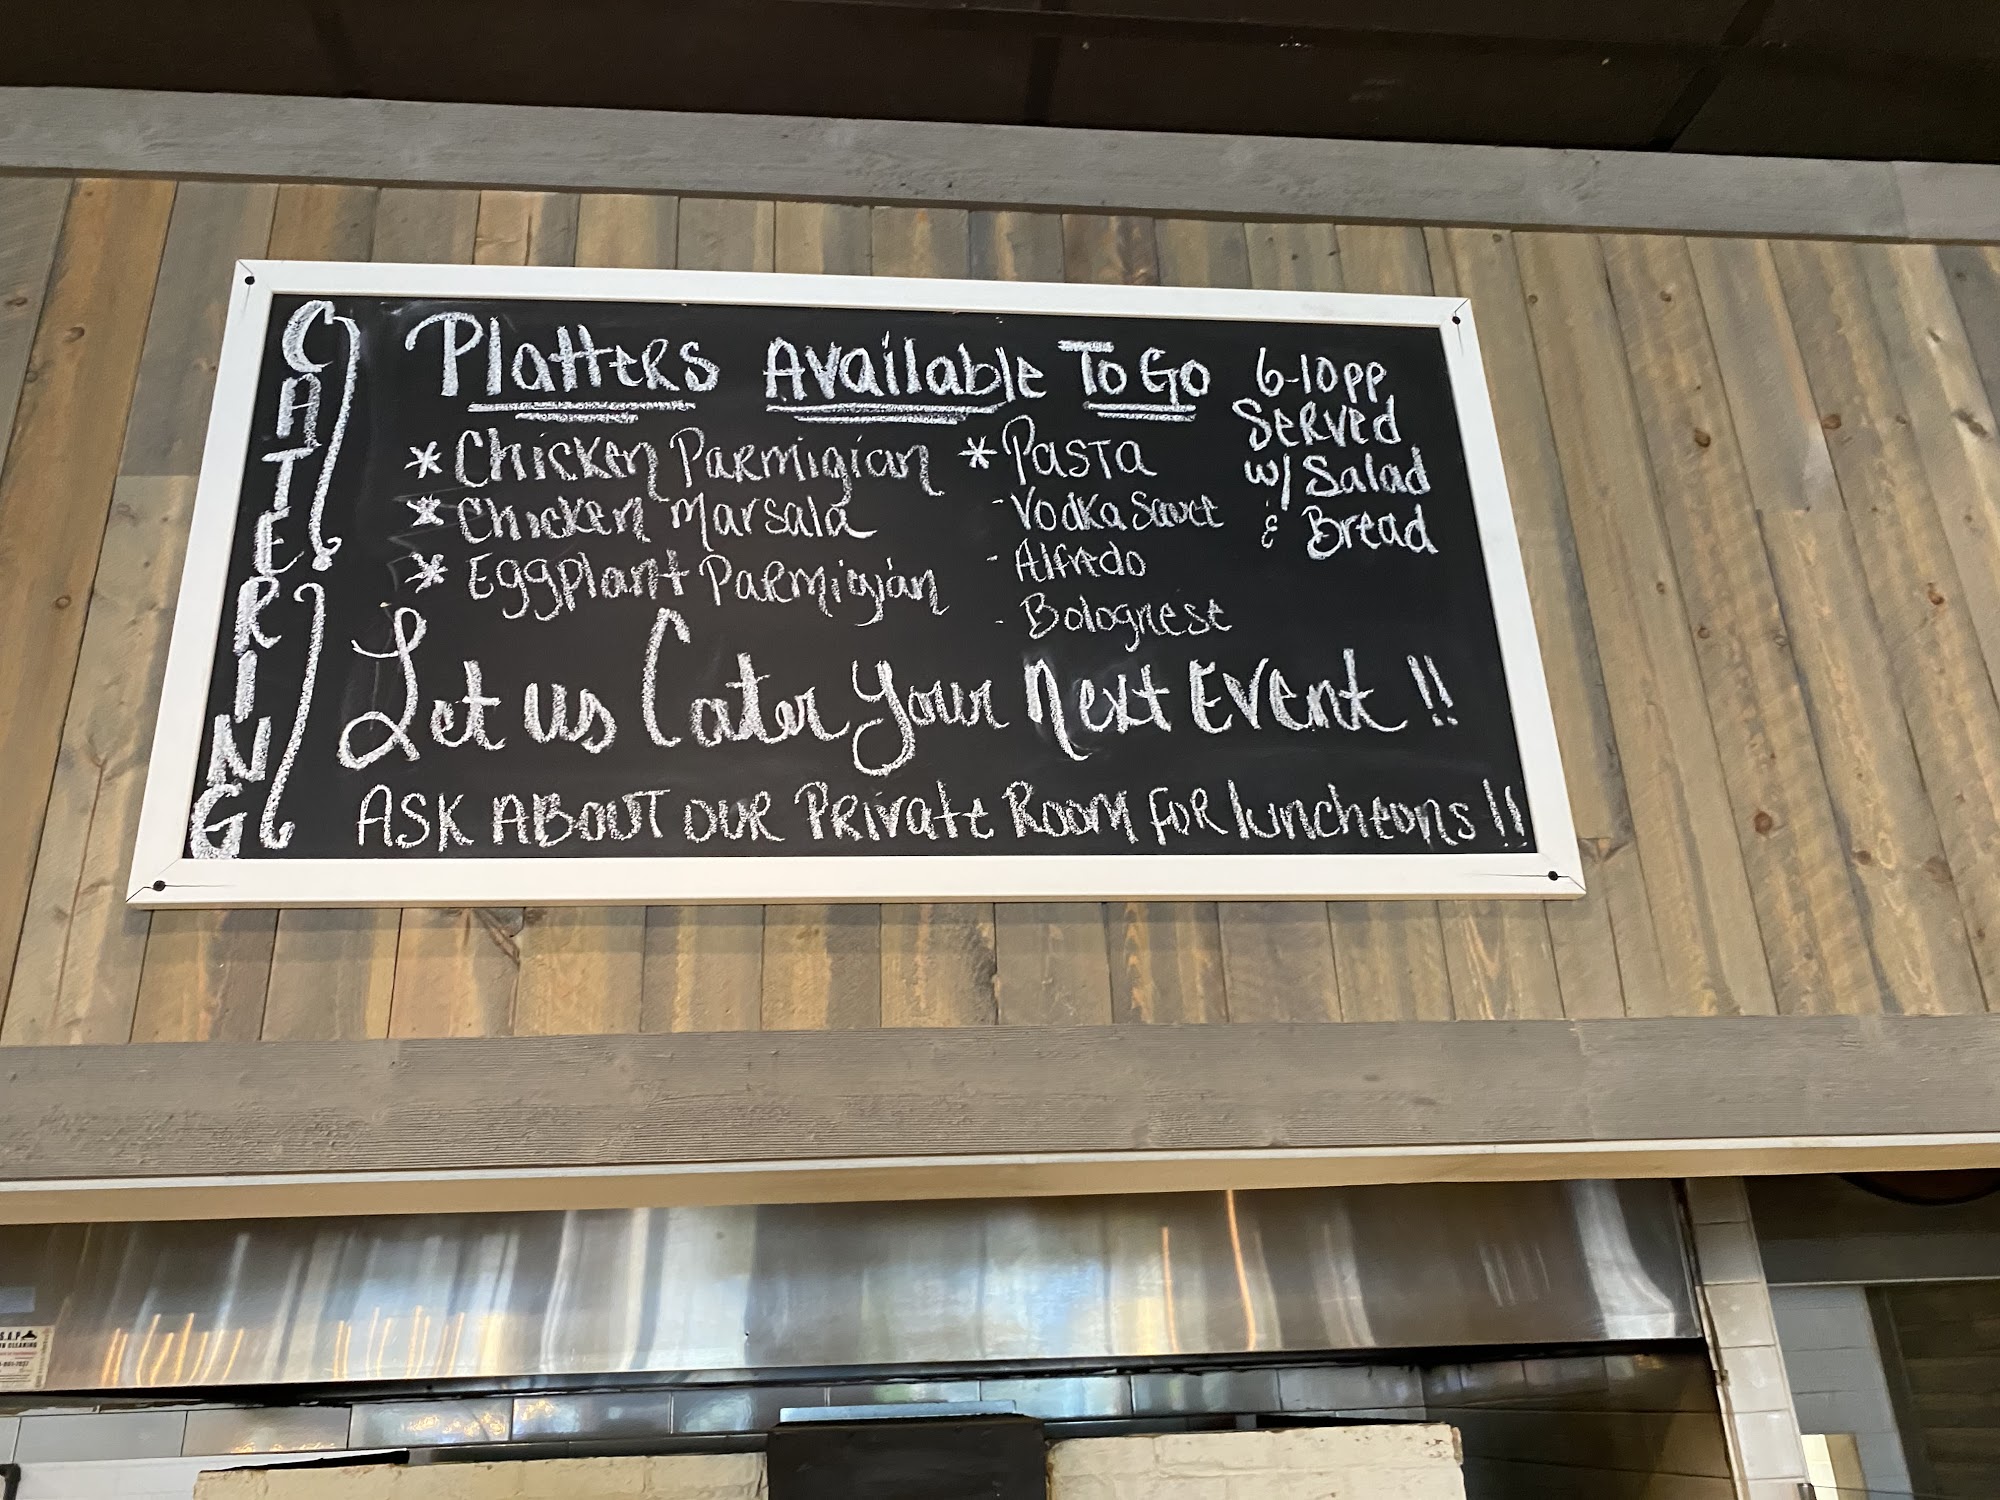 CATERING
Platters Available To Go
* Chicken Parmigian
* Chicken Marsala
* Eggplant Parmigian
* Pasta
- Vodka Sauce
- Alfredo
- Bolognese
6-10 pp
Served
w/ Salad
& Bread
Let us Cater Your Next Event !!
ASK ABOUT OUR Private Room FOR luncheons !!